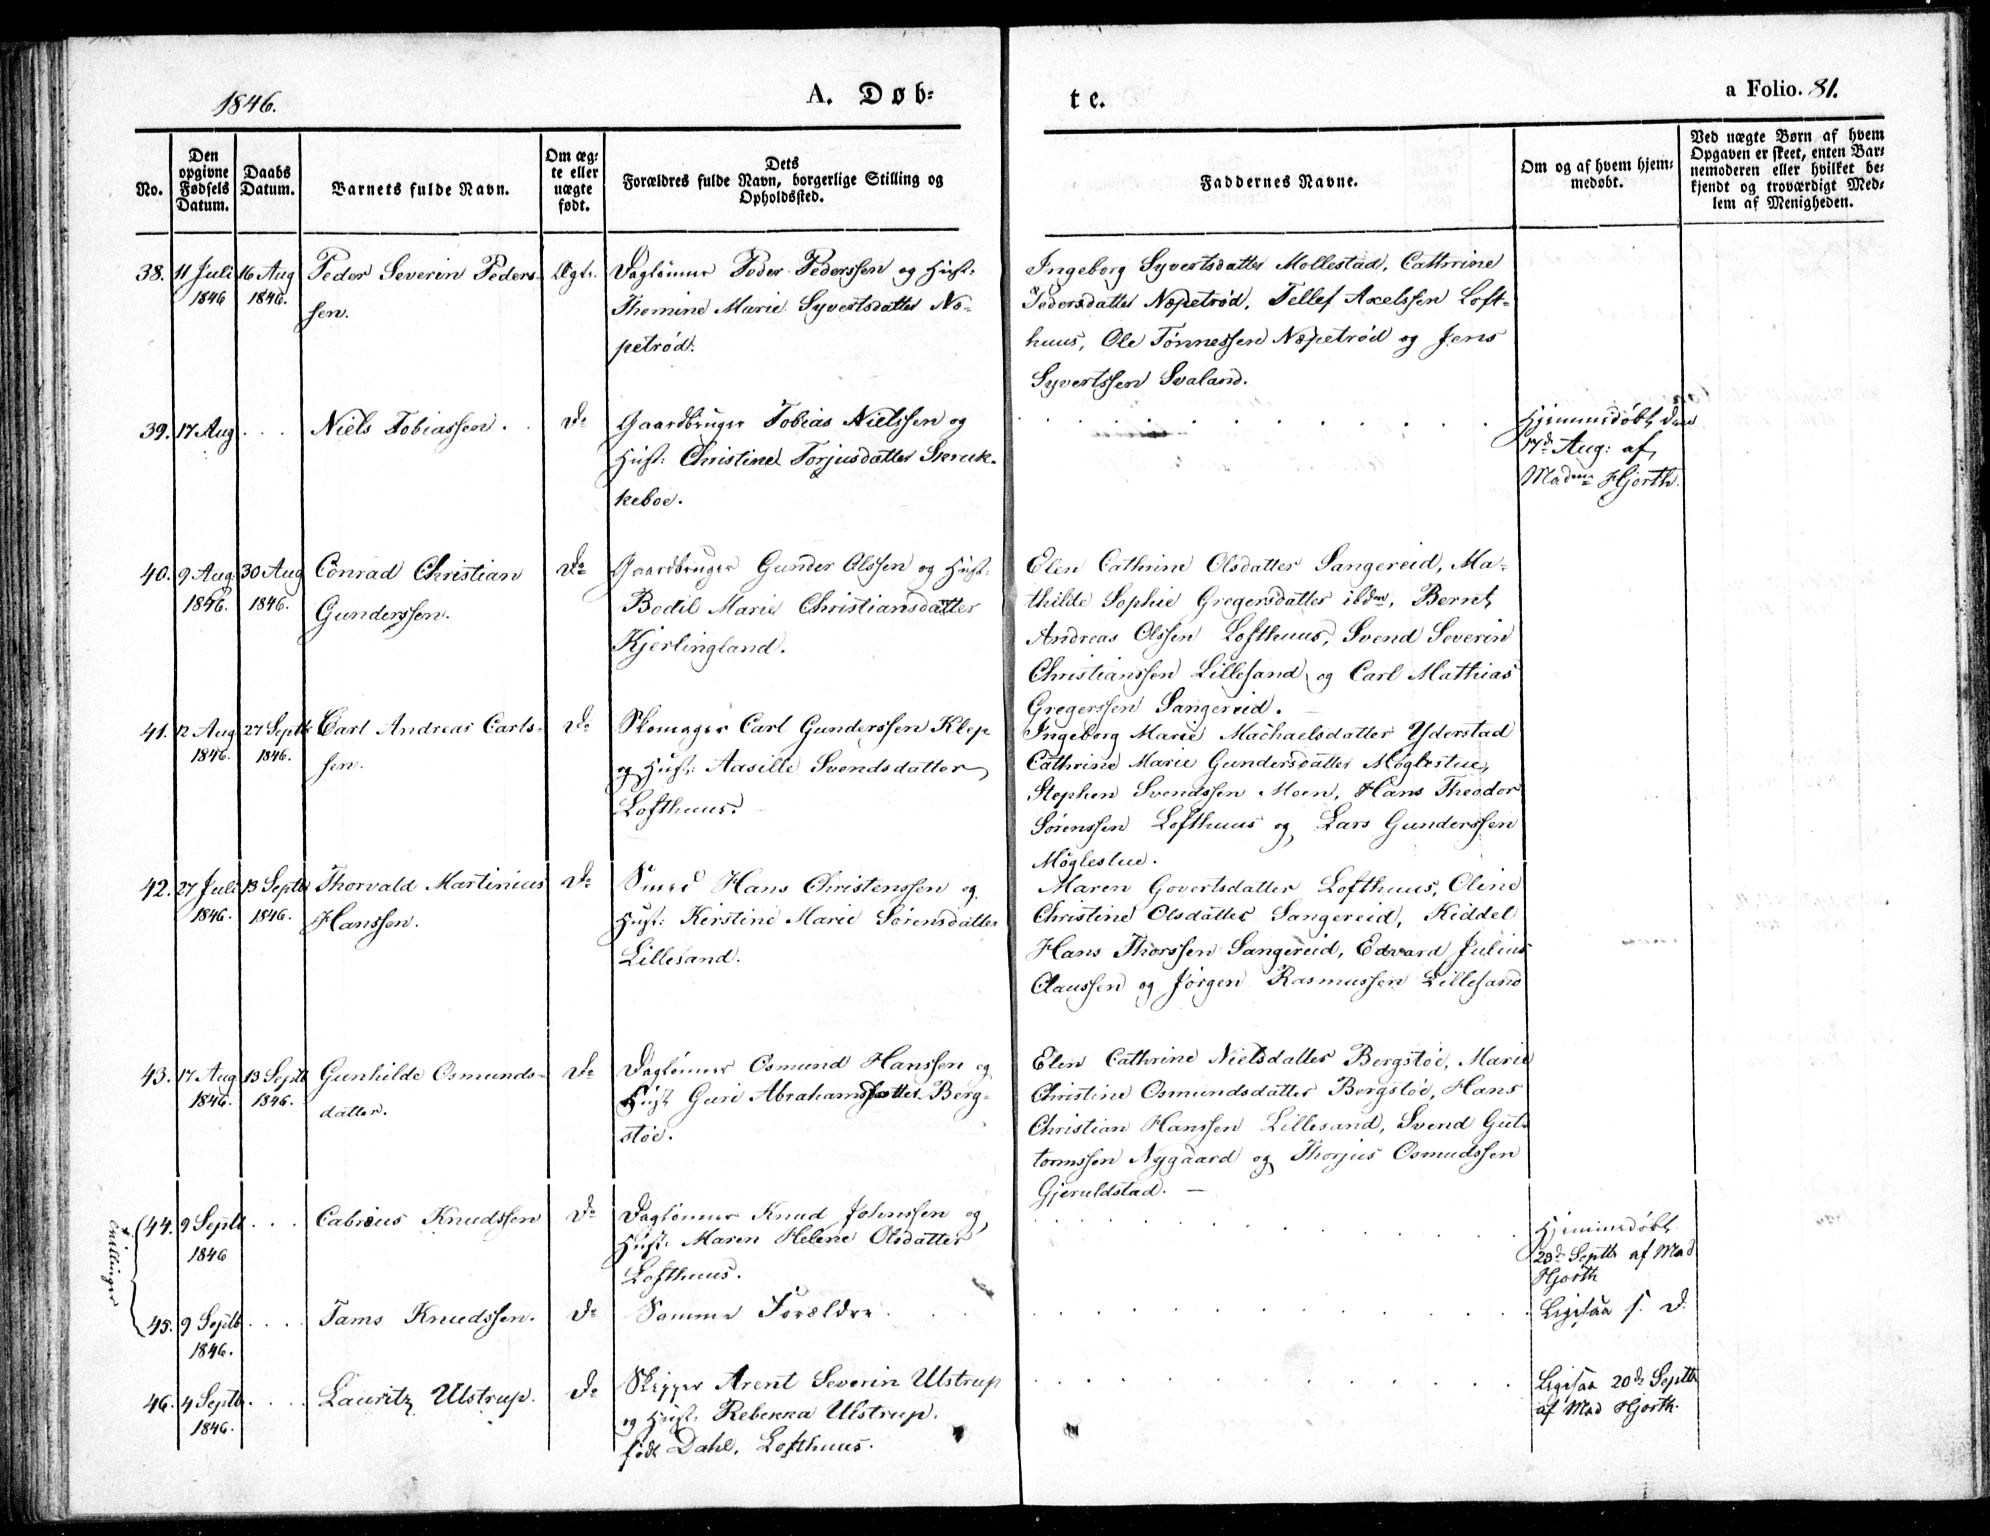 1846.
A. Døb-
te.
a Folio. 81.
No.
Den
opgivne
Fødsels
Datum.
Daabs
Datum.
Barnets fulde Navn.
Om æg-
te eller
uægte
født.
Dets
Forældres fulde Navn, borgerlige Stilling og
Opholdssted.
Faddernes Navne.
Om og af hvem hjem-
medøbt.
Ved uægte Børn af hvem
Opgaven er skeet, enten Bar-
nemoderen eller hvilket be-
kjendt og troværdigt Med-
lem af Menigheden.
38.
11 Juli
1846
16 Aug
1846.
Peder Severin Peders-
sen.
Ægte.
Daglønner Peder Pederssen og Hust:
Thomine Marie Syvertsdatter Næ-
petrød.
Ingeborg Syvertsdatter Mollestad, Cathrine
Pedersdatter Næpetrød, Tellef Axelssen Loft-
huus, Ole Tønnessen Næpetrød og Jens
Syvertssen Svaland.
39.
17 Aug
Niels Tobiassen.
Do
Gaardbruger Tobias Nielssen og
Hust: Christine Torjusdatter Skruk-
keboe.
Hjemmedøbt den
17d Aug: af
Madme Hjorth.
40.
9 Aug:
1846.
30 Aug
1846.
Conrad Christian
Gunderssen.
Do
Gaardbruger Gunder Olssen og Hust:
Bodil Marie Christiansdatter
Kjerlingland.
Elen Cathrine Olsdatter Sangereid, Ma-
thilde Sophie Gregersdatter ibdm, Bernt
Andreas Olssen Lofthuus, Svend Severin
Christianssen Lillesand og Carl Mathias
Gregerssen Sangereid.
41.
12 Aug
1846.
27 Septb
1846.
Carl Andreas Carls-
sen.
Do
Skomager Carl Gunderssen Klep
og Hust: Aasille Svendsdatter
Lofthuus.
Ingeborg Marie Machaelsdatter Yderstad
Cathrine Marie Gundersdatter Møglestue,
Stephen Svendssen Moen, Hans Theodor
Sørenssen Lofthuus og Lars Gunderssen
Møglestue.
42.
27 Juli
1846.
13 Septb
1846.
Thorvald Martinius
Hanssen.
Do
Smed Hans Christenssen og
Hust: Kirstine Marie Sørensdatter
Lillesand.
Maren Govertsdatter Lofthuus, Oline
Christine Olsdatter Sangereid, Kiddel
Hans Thorssen Sangereid, Edvard Julius
Claussen og Jørgen Rasmussen Lillesand
43.
17 Aug
1846.
13 Septb
1846.
Gunhilde Osmunds-
datter.
Do
Daglønner Osmund Hanssen og
Hust Guri Abrahamsdatter Berg-
støe.
Elen Cathrine Nielsdatter Bergstøe, Marie
Christine Osmundsdatter Bergstøe, Hans
Christian Hanssen Lillesand, Svend Gut-
tormssen Nygaard og Thorjus Osmudssen
Gjeruldstad.
Tvillinger
44.
9 Septb
1846
Cabrius Knudssen
Do
Daglønner Knud Johnssen og
Hust: Maren Helene Olsdatter
Lofthuus.
Hjemmedøbt
20d Septb af Mad
Hjorth
45.
9 Septb
1846.
Tams Knudssen.
Do
Samme Forældre
Ligesaa s. D.
46.
4 Septb
1846.
Lauritz Ulstrup.
Do
Skipper Arent Severin Ulstrup
og Hust: Rebekka Ulstrup.
født Dahl, Lofthuus.
Ligesaa 20d Septb
af Mad Hjorth.